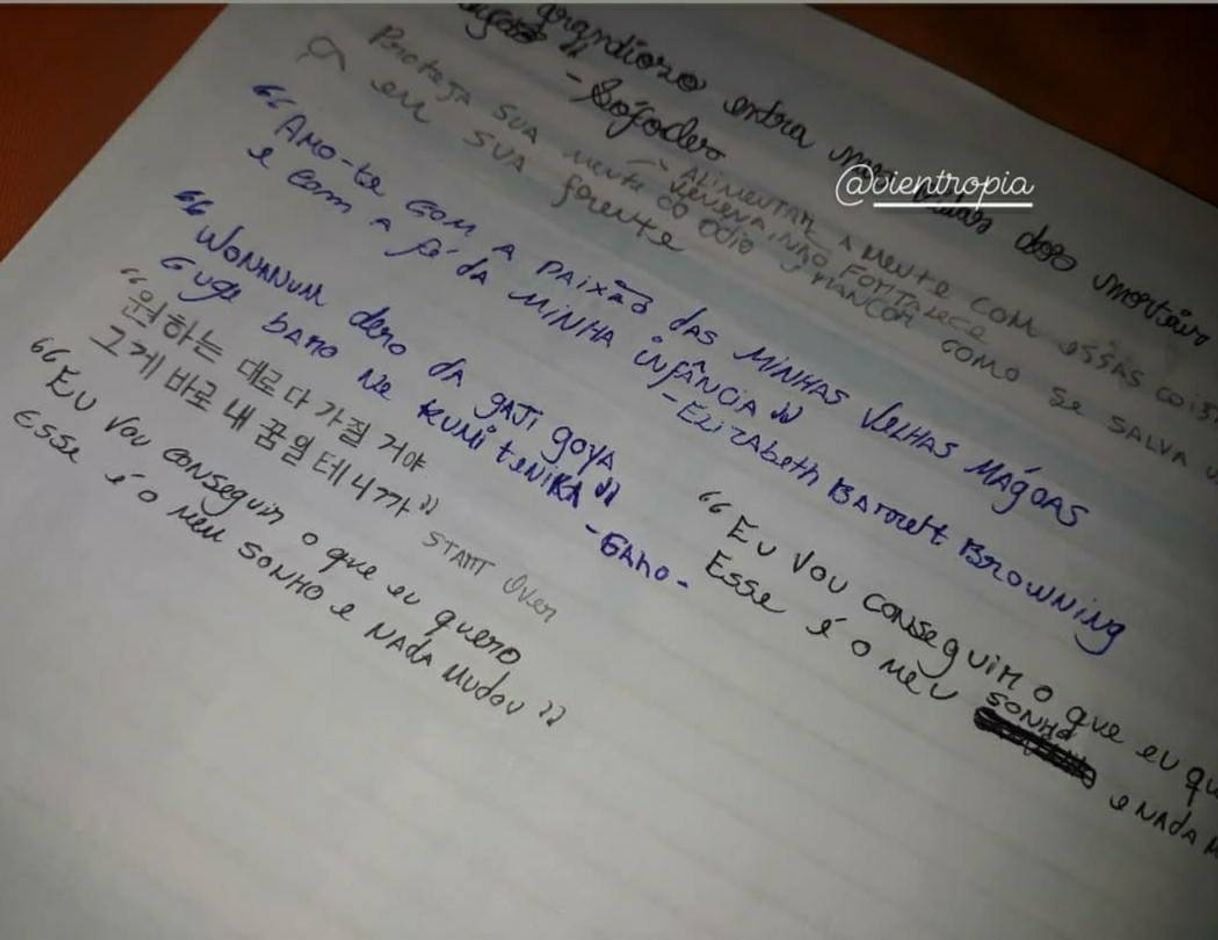 grandiozo entra nas vidas dos mortais
- Sófocles
Proteja sua mente do ódio e rancor como se salva
em sua forente
Alimentar a mente com essas cois
venena, não fortalece
@vientropia
“Amo-te com a paixão das minhas velhas mágoas
e com a fé da minha infância”
-Elizabeth Barrett Browning
“Wonanum dero da gaji goya
Guge baro ne kumi tenika” -Gaho-
“원하는 대로 다 가질 거야
그게 바로 내 꿈일 테니까” Start Over
“Eu vou conseguir o que eu quero
Esse é o meu sonho e nada mudou”
“Eu vou conseguir o que eu qu
Esse é o meu sonho e nada m